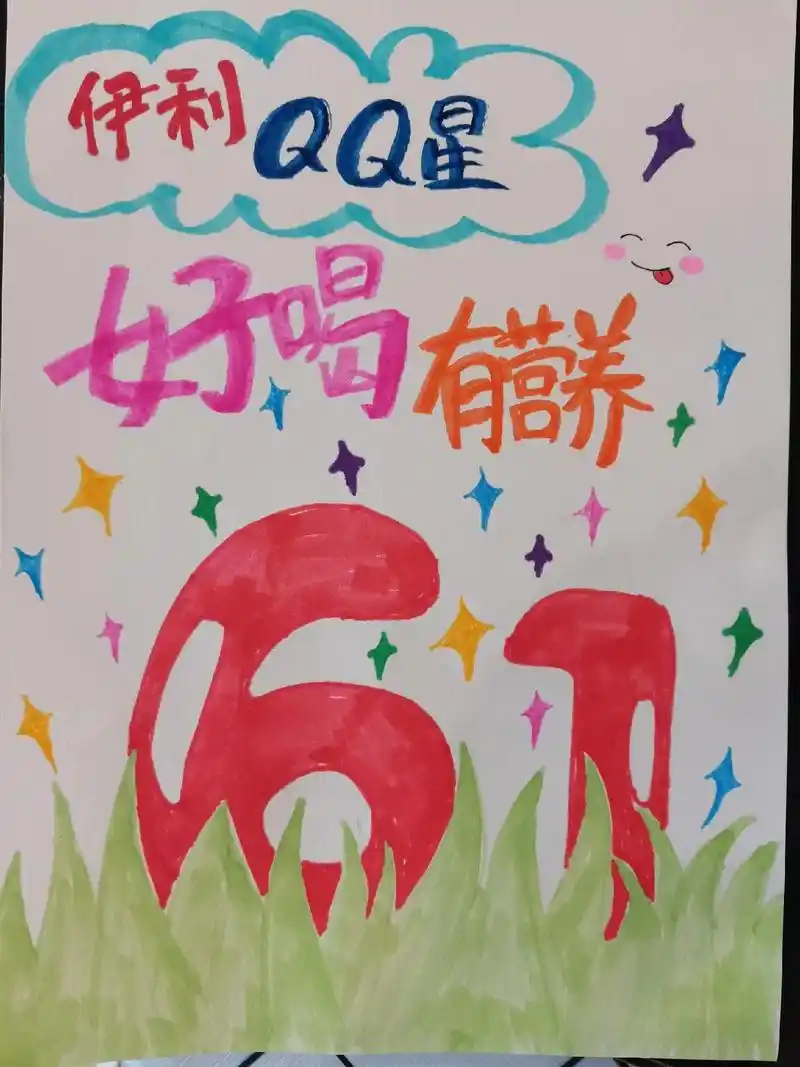 伊利QQ星
好喝有营养
61